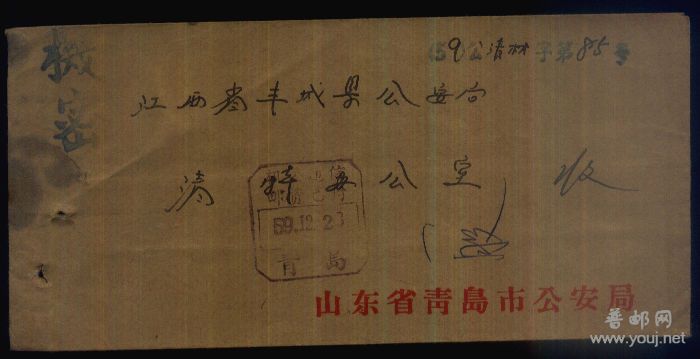 机密
(59)公清材字第85号
江西省丰城县公安局
清 办公室 收
59.12.23
青岛
山东省青島市公安局
普邮网
www.youj.net